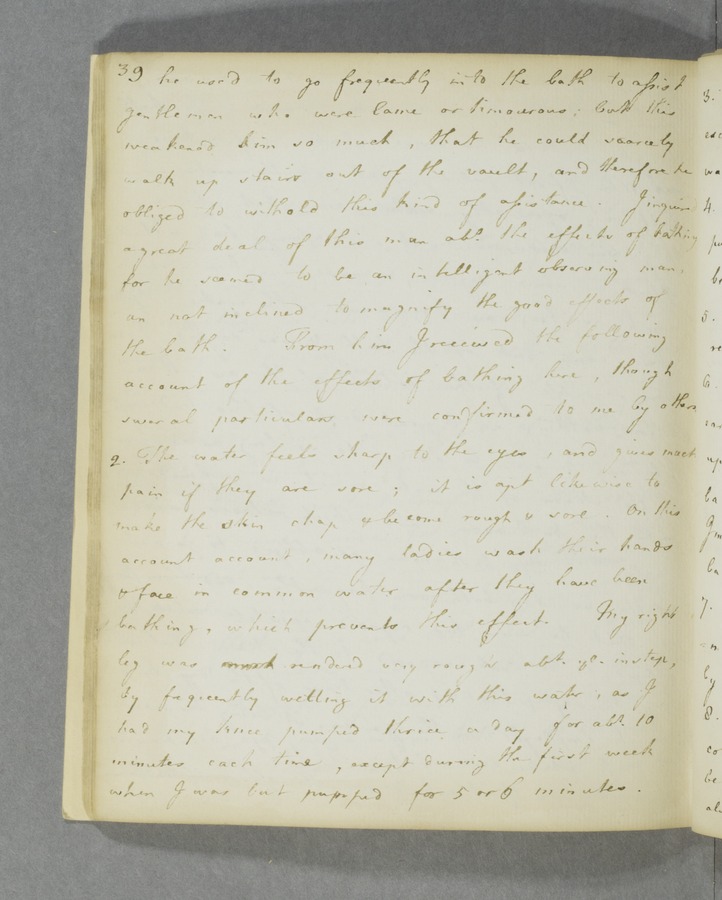 39 he used to go frequently into the bath to assist
gentlemen who were lame or timourous; but this
weakened him so much, that he could scarcely
walk up stairs out of the vault, and therefore he
obliged to withold this kind of assistance. I inquired
a great deal of this man abt. the effects of bathing
for he seemed to be an intelligent observing man,
an not inclined to magnify the good effects of
the bath. From him I received the following
account of the effects of bathing here, though
several particulars were confirmed to me by others
2. The water feels sharp to the eyes, and gives much
pain if they are sore; it is apt likewise to
make the skin chap & become rough & sore. On this
account account, many ladies wash their hands
& face in common water after they have been
bathing, which prevents this effect. My right
leg was rendered very rough abt. ye. instep,
by frequently wetting it with this water, as I
had my knee pumped thrice a day for abt. 10
minutes each time, except during the first week
when I was but pumped for 5 or 6 minutes.
3.
4.
5.
6.
7.
8.